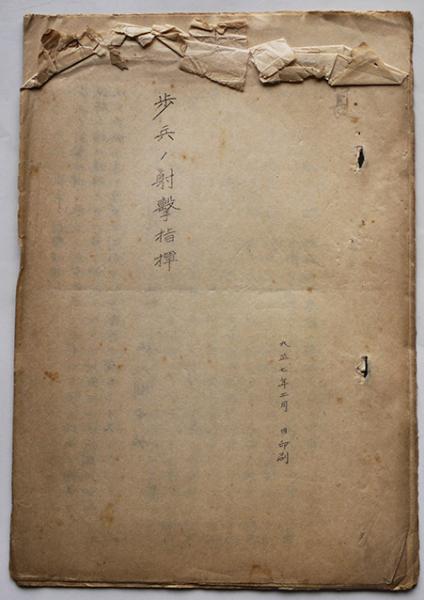 歩兵ノ射撃指揮
大正七年二月 日印刷